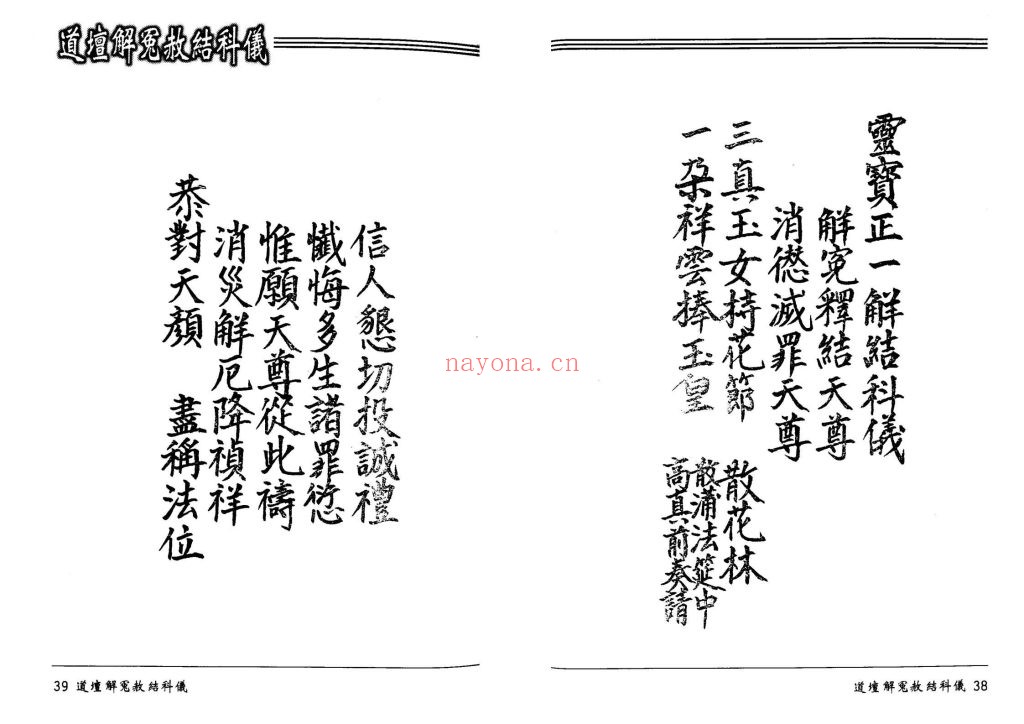 道壇解冤赦結科儀
靈寶正一解結科儀
解冤釋結天尊
消愆滅罪天尊
三真玉女持花節 散花林
一朶祥雲捧玉皇 散滿法筵中
高真前奏請
道壇解冤赦結科儀 38
信人懇切投誠禮
懺悔多生諸罪愆
惟願天尊從此禱
消災解厄降禎祥
恭對天顏 盡稱法位
39 道壇解冤赦結科儀
nayona.cn